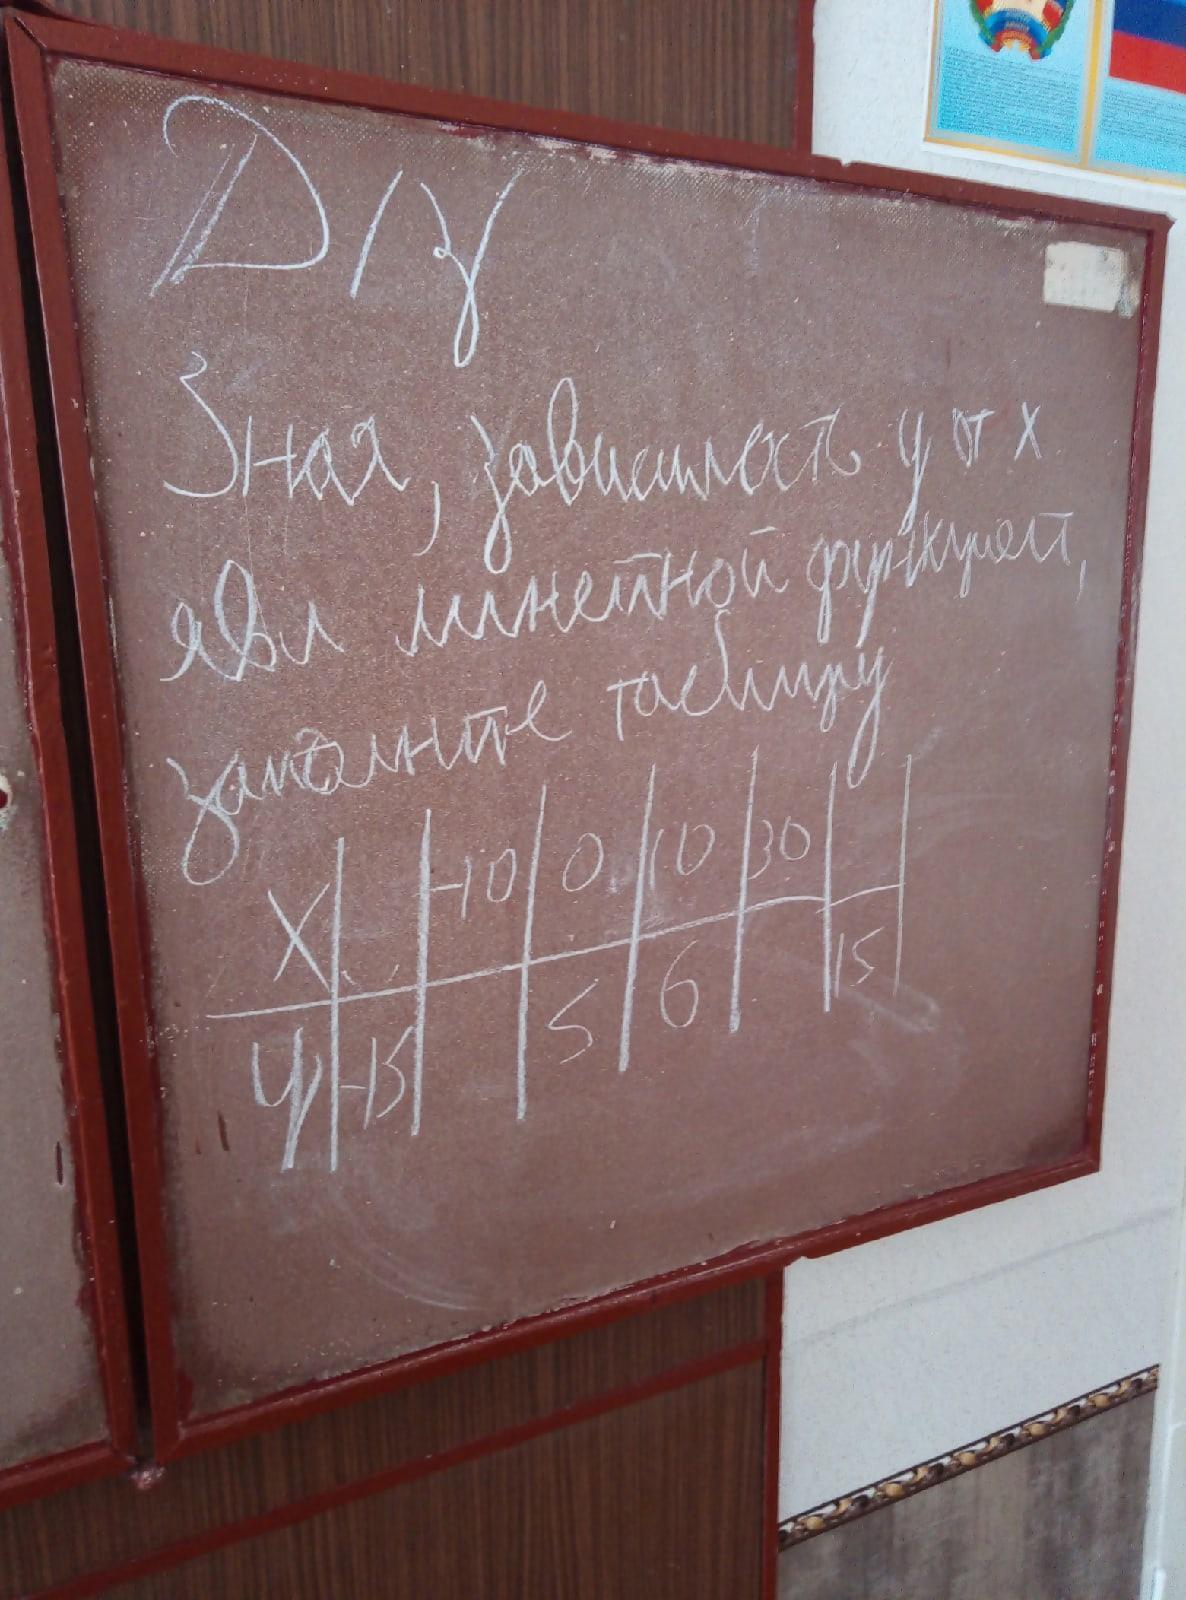 Д/з
Зная, зависимость y от x
явл линейной функцией,
заполните таблицу
X | | -10 | 0 | 10 | 30 | |
y | -15 | | 5 | 6 | | 15 |